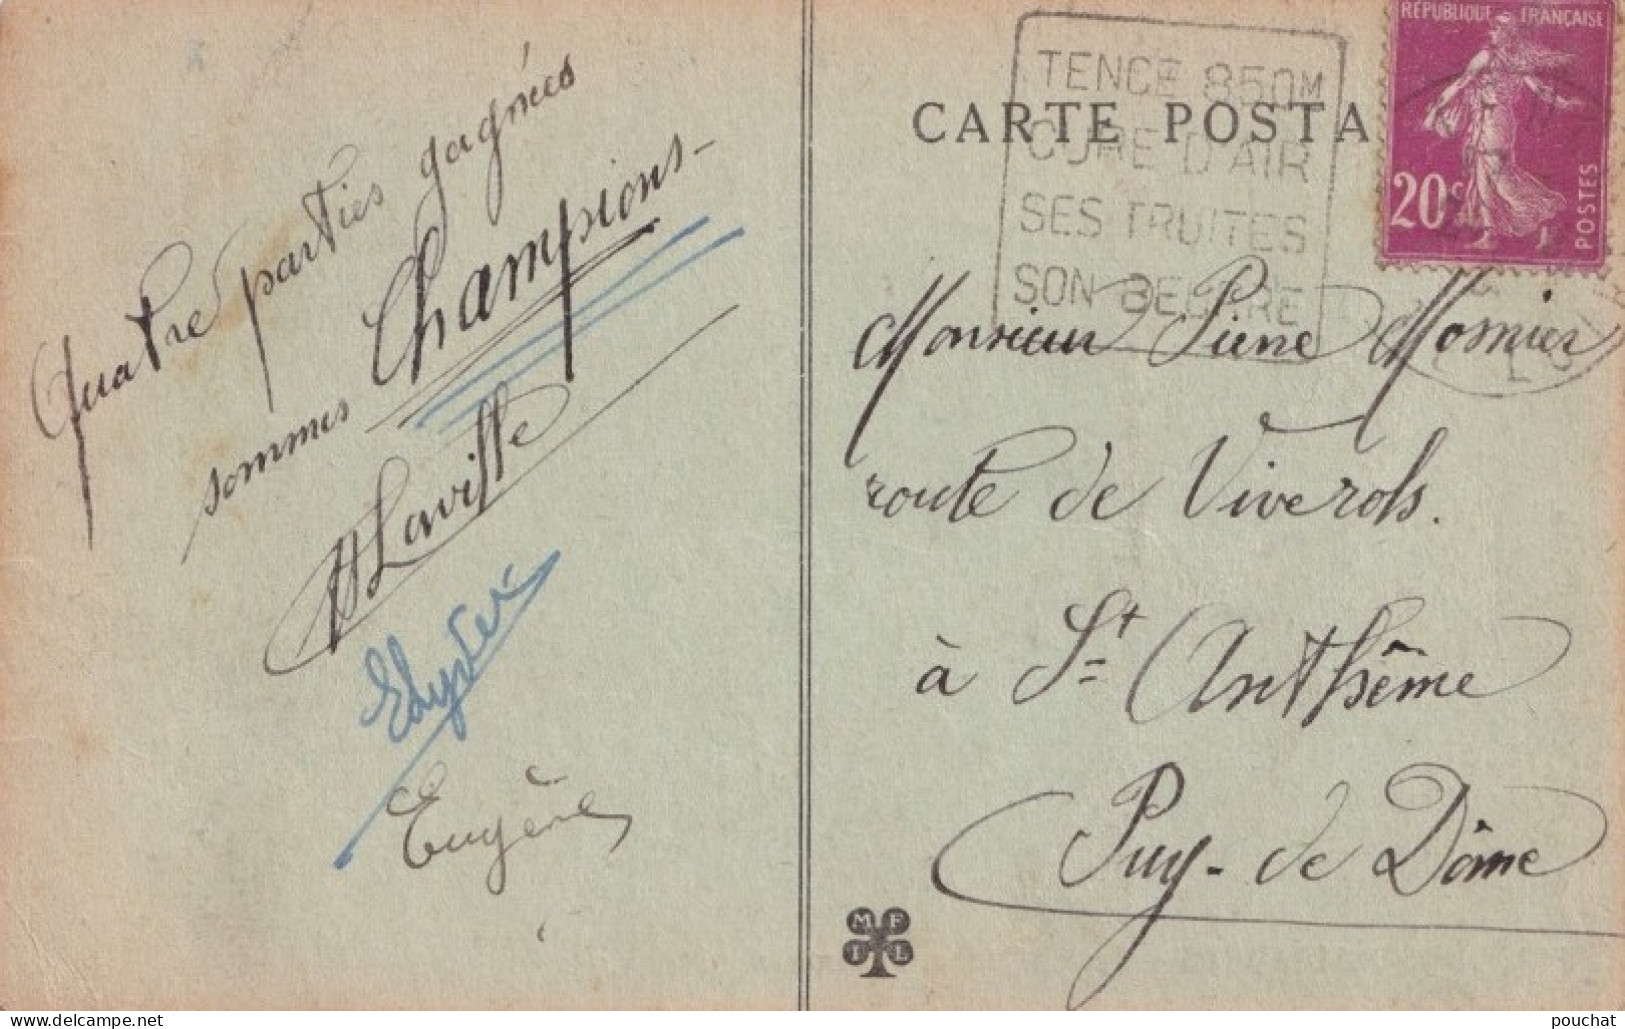 Quatre parties gagnées
sommes Champions -
Laviffe
Eugène
CARTE POSTA
TENCE 850M
CURE D'AIR
SES TRUITES
SON BEURRE
REPUBLIQUE FRANÇAISE
20c
POSTES
Monsieur Pierre Mosnier
route de Viverols.
à St Anthême
Puy-de Dôme
M F
T L
pouchat